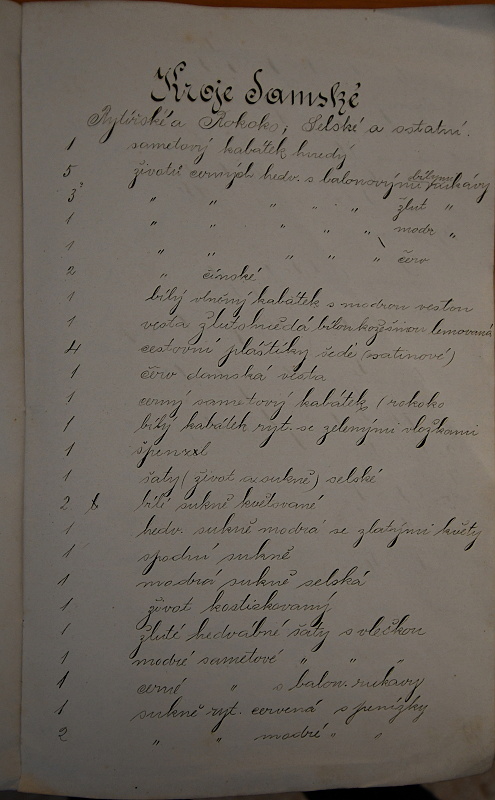 Kroje Damské
Rytířské a Rokoko, Selské a ostatní.
1 sametový kabátek hnědý
5 životů černých hedv. s balonovými bílými rukávy
3 " " " " " žlut "
1 " " " " " modr "
1 " " " " " červ
2 " čínské
1 bílý vlněný kabátek s modrou vestou
1 vesta žlutohnědá bílou kožešinou lemovaná
4 cestovní pláštíky šedé (satinové)
1 červ damská vesta
1 černý sametový kabátek (rokoko
1 bílý kabátek ryt. se zelenými vložkami
1
1 šaty (život a sukně) selské
2 bílé sukně květované
1 hedv. sukně modrá se zlatnými květy
1 spodní sukně
1 modrá sukně selská
1 život kostickovaný
1 žluté hedvábné šaty s vlečkou
1 modré sametové " " "
1 černé " s balon. rukávy
1 sukně ryt. červená s penízky
2 " " modré " "